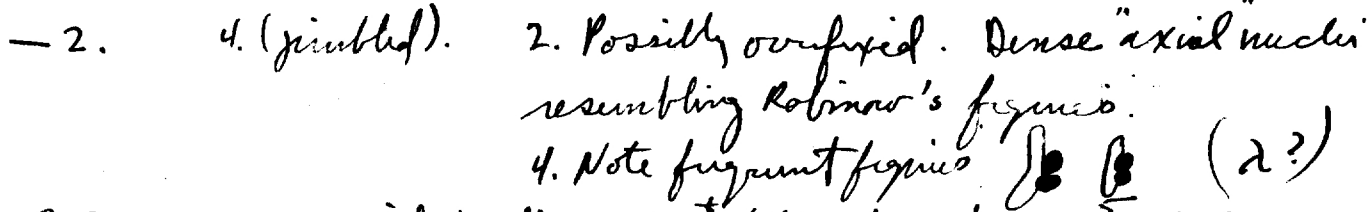 — 2. 4. (jumbled). 2. Possibly overfixed. Dense "axial" nuclei
resembling Robinow's figures.
4. Note frequent figures (λ?)